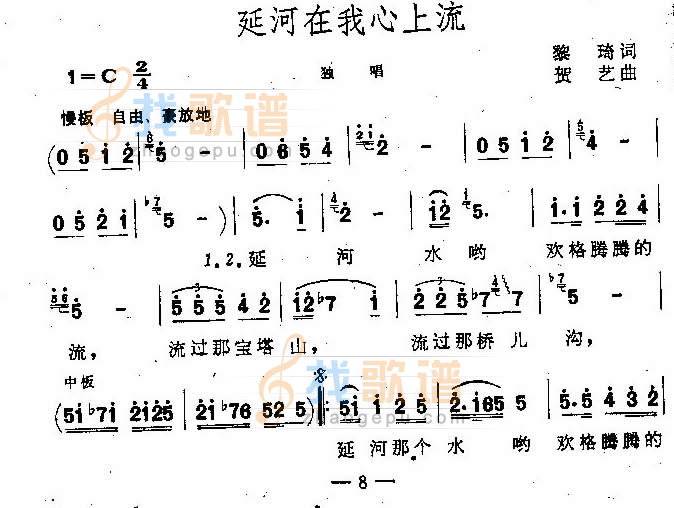 延河在我心上流
黎 琦词
1=C 2/4 独 唱 贺 艺曲
慢板 自由、豪放地
(0 5 i 2 5 - 0 6 5 4 2 - 0 5 i 2 4 -
0 5 2 i 5 -) 5. i 2 - i2 5. i.i 2 2 4
1.2.延 河 水 哟 欢格腾腾的
5 - 5 5 5 4 2 i2♭7 i 2 2 5♭7 5 -
流, 流过那宝塔山, 流过那桥儿沟,
中板
(5i♭7i 2i25 2i♭76 525) 5i i 2 5 2.i65 5 5.5 4 3 2
延河那个水 哟 欢格腾腾的
找歌谱
zhaogepu.com
— 8 —